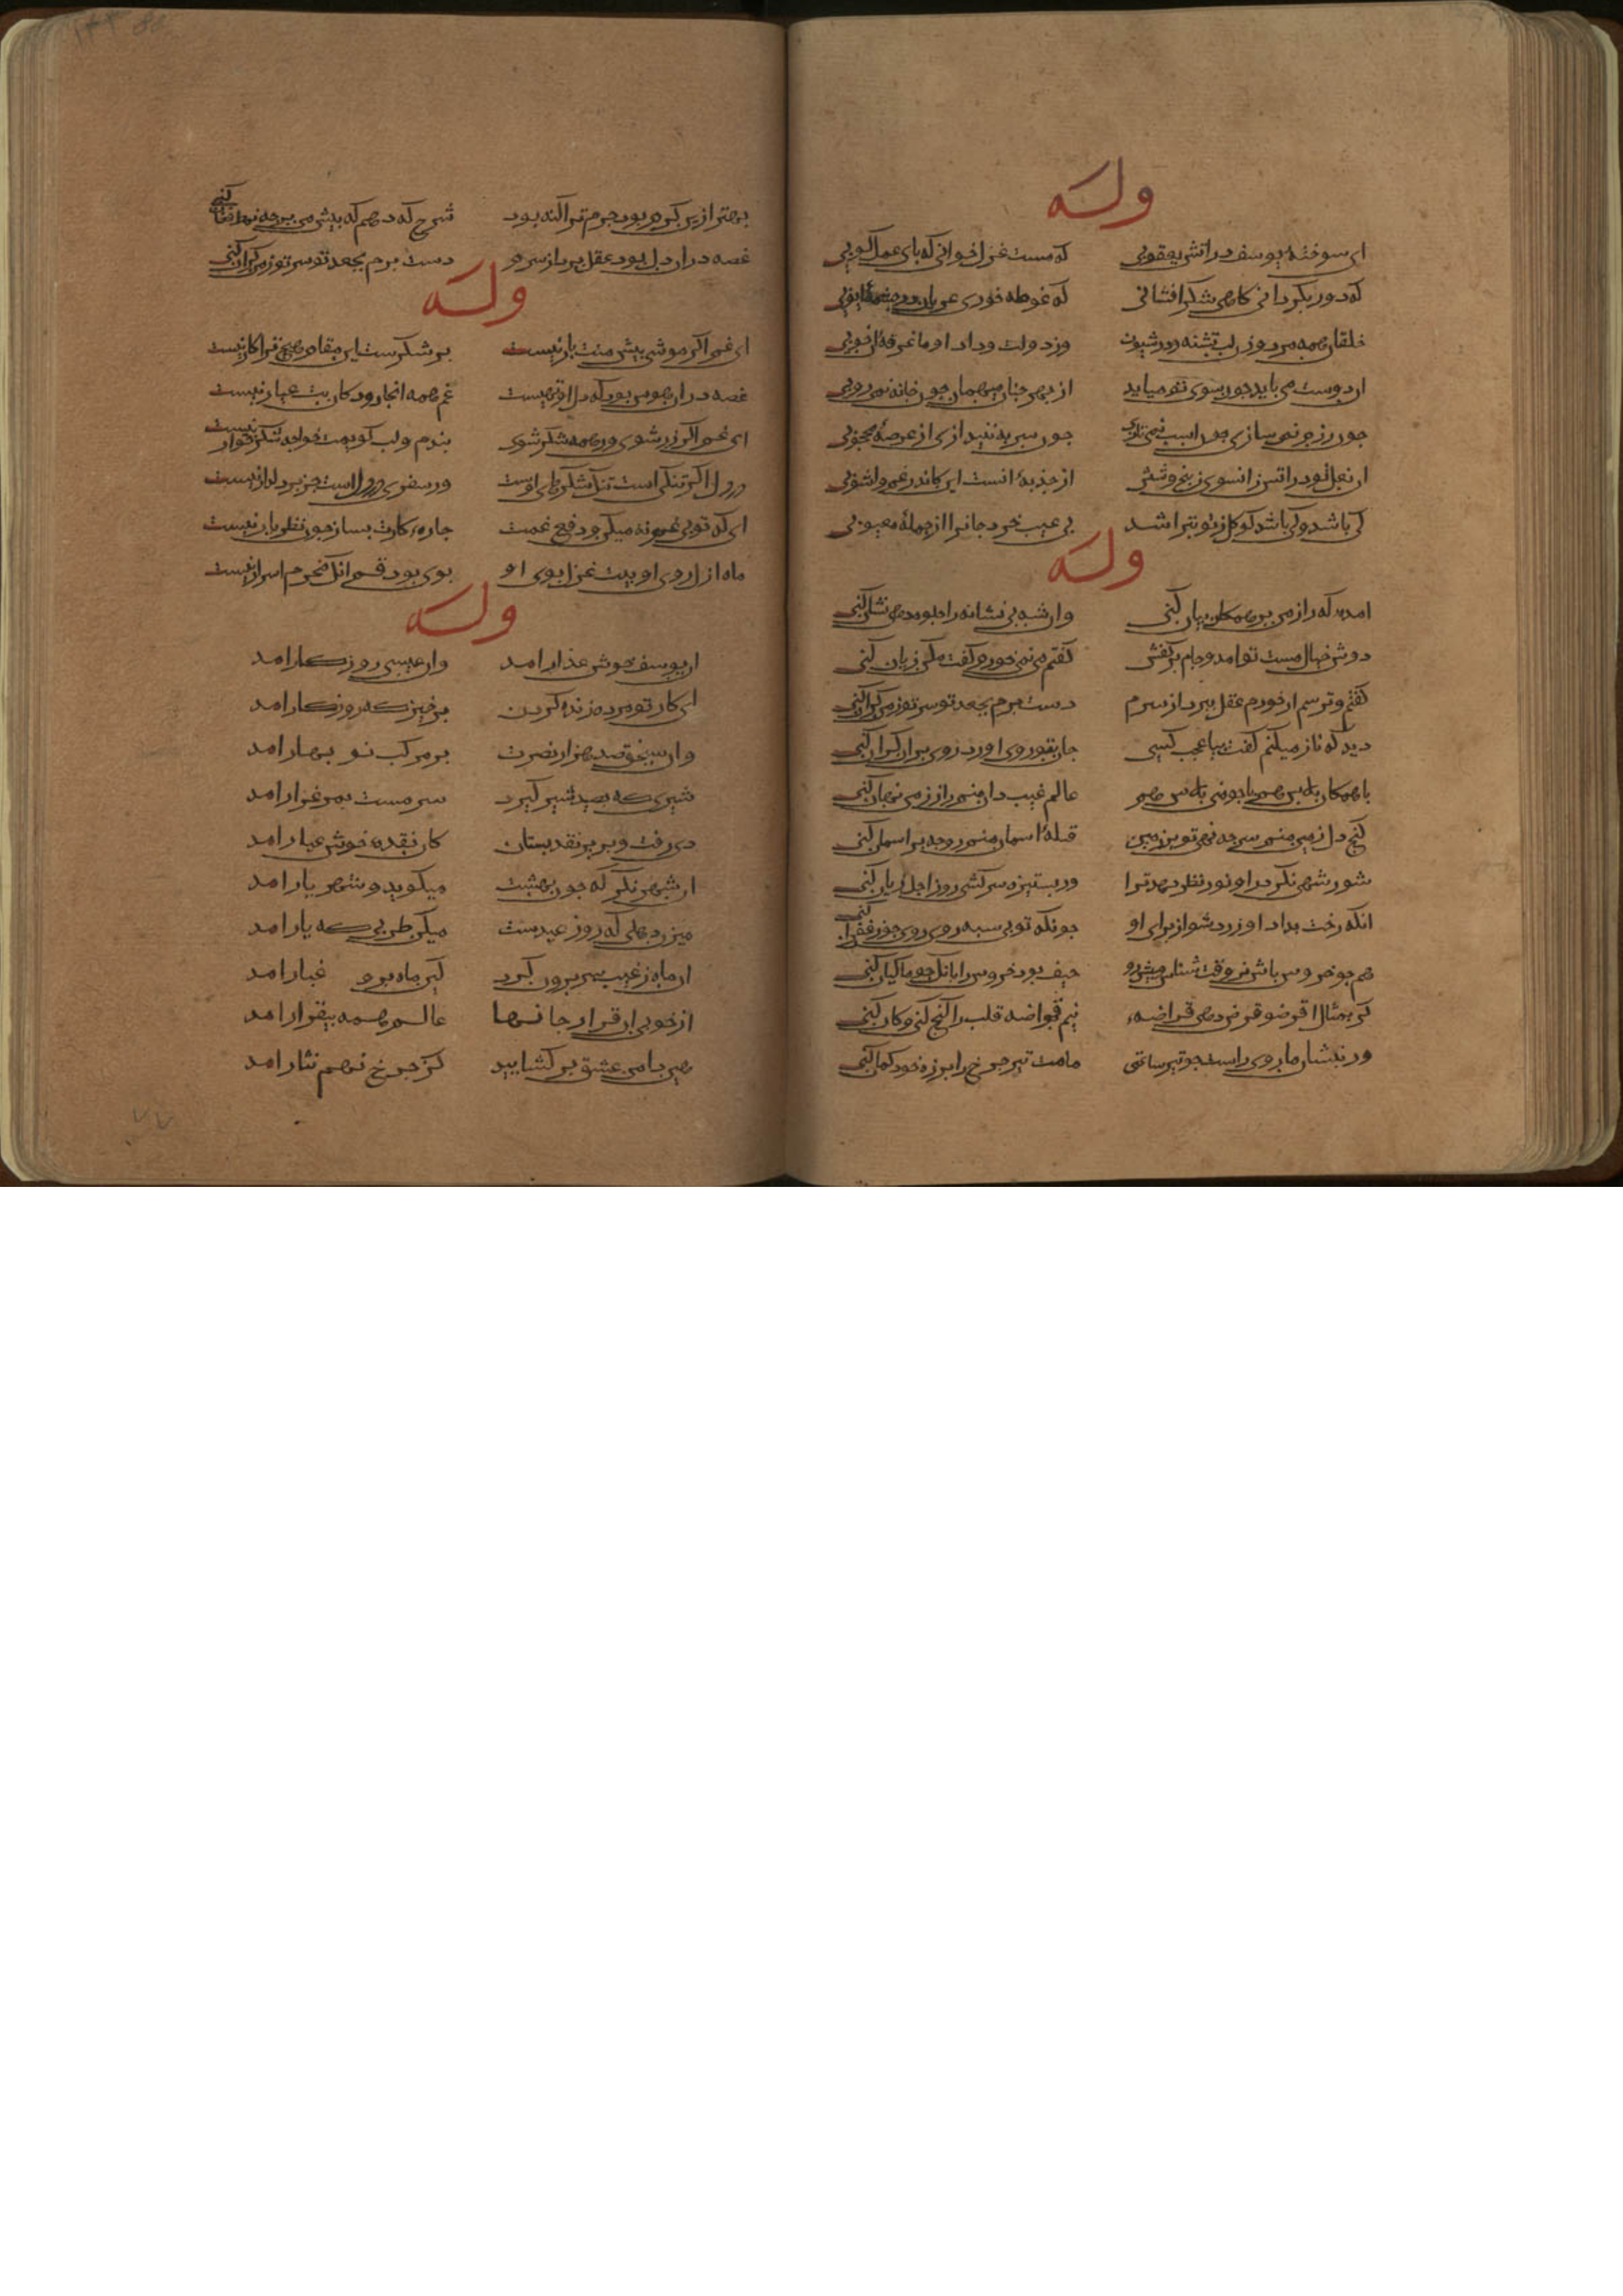 وله
ای سوخته یوسف در اتش یعقوبی که مست غزل خوانی که پای عمل کوبی
که دور بگردانی کاهی شکر افشانی که غوطه خوری عریان در چشمه ایوبی
خلقان همه مرد و زن لب تشنه و در شیون وز دولت و داد او ما غرقه ان خوبی
ان دوست می باید چون سوی تو می اید از بهر چنان مهمان چون خانه نمی روبی
چون رزم نمی سازی چون اسب نمی تازی چون سپر به نیندازی از عرصه محجوبی
ان نعل تو در اتش زانسوی ز پنج و شش از جذبه انست این کاندر غم و اشوبی
کی باشد و کی باشد کو کل ز تو بتراشد بی عیب خرد جانرا از جمله معیوبی
وله
امده که راز من بر همکان بیان کنی وان شه بی نشانه را جلوه دهی نشان کنی
دوش خیال مست تو امد و جام بر کفش کفتم می نمی خورم کفت مکن زیان کنی
کفتم و ترسم ار خورم عقل ببرد از سرم دست برم بجعد تو سر تو ز من کران کنی
دید که ناز میکنم کفت بیا عجب کسی جان بتو روی اورد روی بر او کران کنی
با همکان پلاس هم با چو منی پلاس هم عالم غیب دان منم راز ز من نهان کنی
کنج دل زمین منم سر چه نهی تو بر زمین قبله اسمان منم رو چه بر اسمان کنی
شور شهی نکر در او نور نظر دهد ترا ور بستیزه سر کشی روز اجل زیان کنی
انکه رخت بداد او زرد شو از برای او چونکه تو بی سپه روی روی چو زعفران کنی
هم چو خروس باش نر وقت شناس و پیش رو حیف بود خروس را بانک چو ماکیان کنی
کر بمثال اقرضو قرض دهی قراضه نیم قراضه قلب را کنج کنی و کان کنی
ور بنشان ما روی راست چو تیر ساعتی قامت تیر چرخ را بر زه خود کمان کنی
بهتر ازین کرم بود جرم ترا کنه بود شرح که دهم که پیش من بر چه نمط فغان کنی
غصه در ان دل بود عقل ببر از سر تو دست برم بجعد تو سر تو ز من کران کنی
وله
ای غم اکر مو شوی پیش منت بار نیست پر شکرست این مقام هیچ ترا کار نیست
غصه در ان هوس بود که دل او تهیست غم همه انجا رود کان بت عیار نیست
ای غم اکر زر شوی ور همه شکر شوی بندم و لب کویمت خواجه شکر خوار نیست
در دل اکر تنکیست تنک شکرهای اوست ور سفری در دل است جز بر دلدار نیست
ای که تو بی غم نه میکن و دفع غمت چاره کارت بساز چون نظر یار نیست
ماه ازل روی او بیت غزل بوی او بوی بود قسم انک محرم اسرار نیست
وله
ان یوسف خوش عذار امد وان عیسی روزکار امد
ای کار تو مرده زنده کردن برخیز که روز کار امد
وان سنجق صد هزار نصرت بر مرکب نو بهار امد
شیری که بصید شیر کیرد سر مست بمرغزار امد
دی رفت و پریر نقد بستان کان نقده خوش عیار امد
این شهر نکر که چون بهشت میکوید و شهریار امد
میزن دهلی که روز عیدست میکن طربی که یار امد
ان ماه ز غیب سر برون کرد کین ماه برو غبار امد
از خوبی ان قرار جانها عالم همه بیقرار امد
هین دامن عشق بر کشایید کز چرخ نهم نثار امد